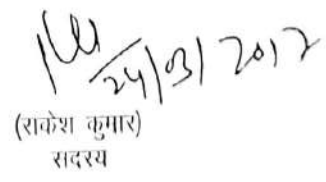 24/03/2012
(राकेश कुमार)
सदस्य